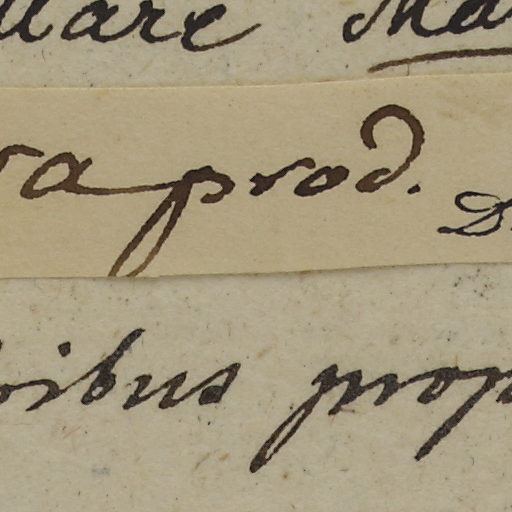 mare Ma
ra prod.
D
ribus prop